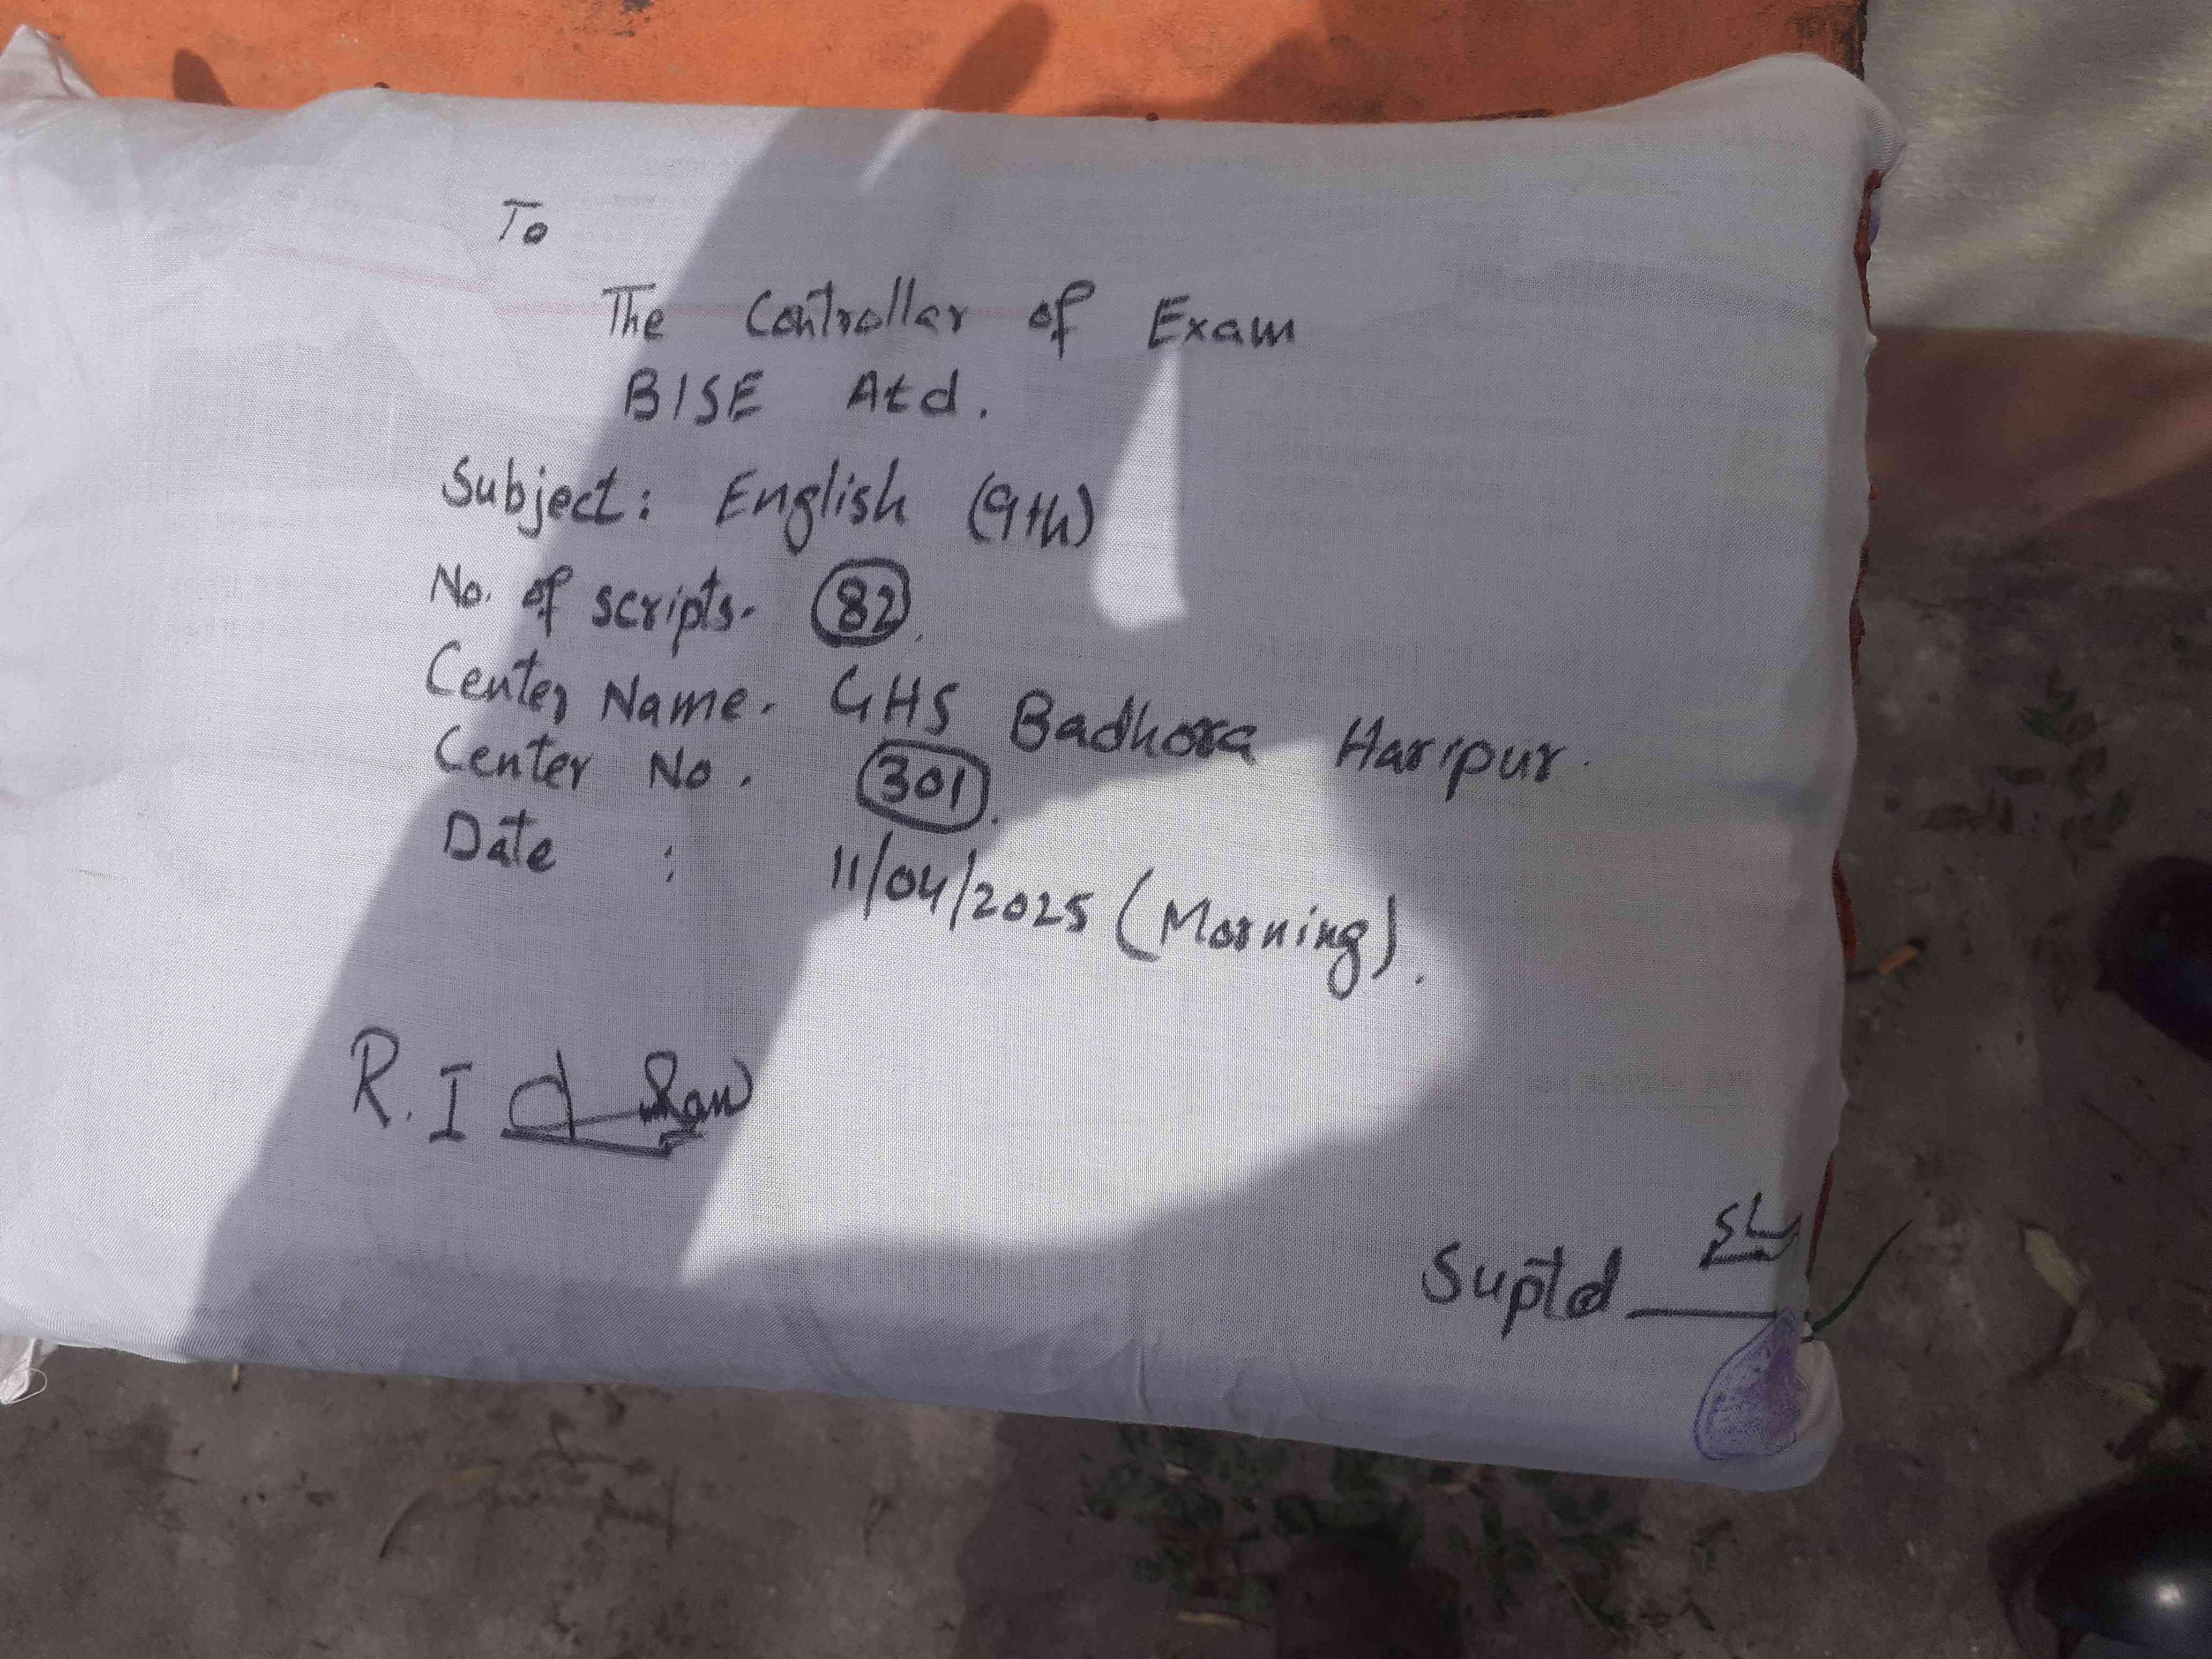 To
The Controllar of Exam
BISE Atd.
Subject: English (9th)
No. of scripts. 82.
Center Name. GHS Badhora Haripur.
Center No. 301.
Date : 11/04/2025 (Morning).
R.I
Suptd